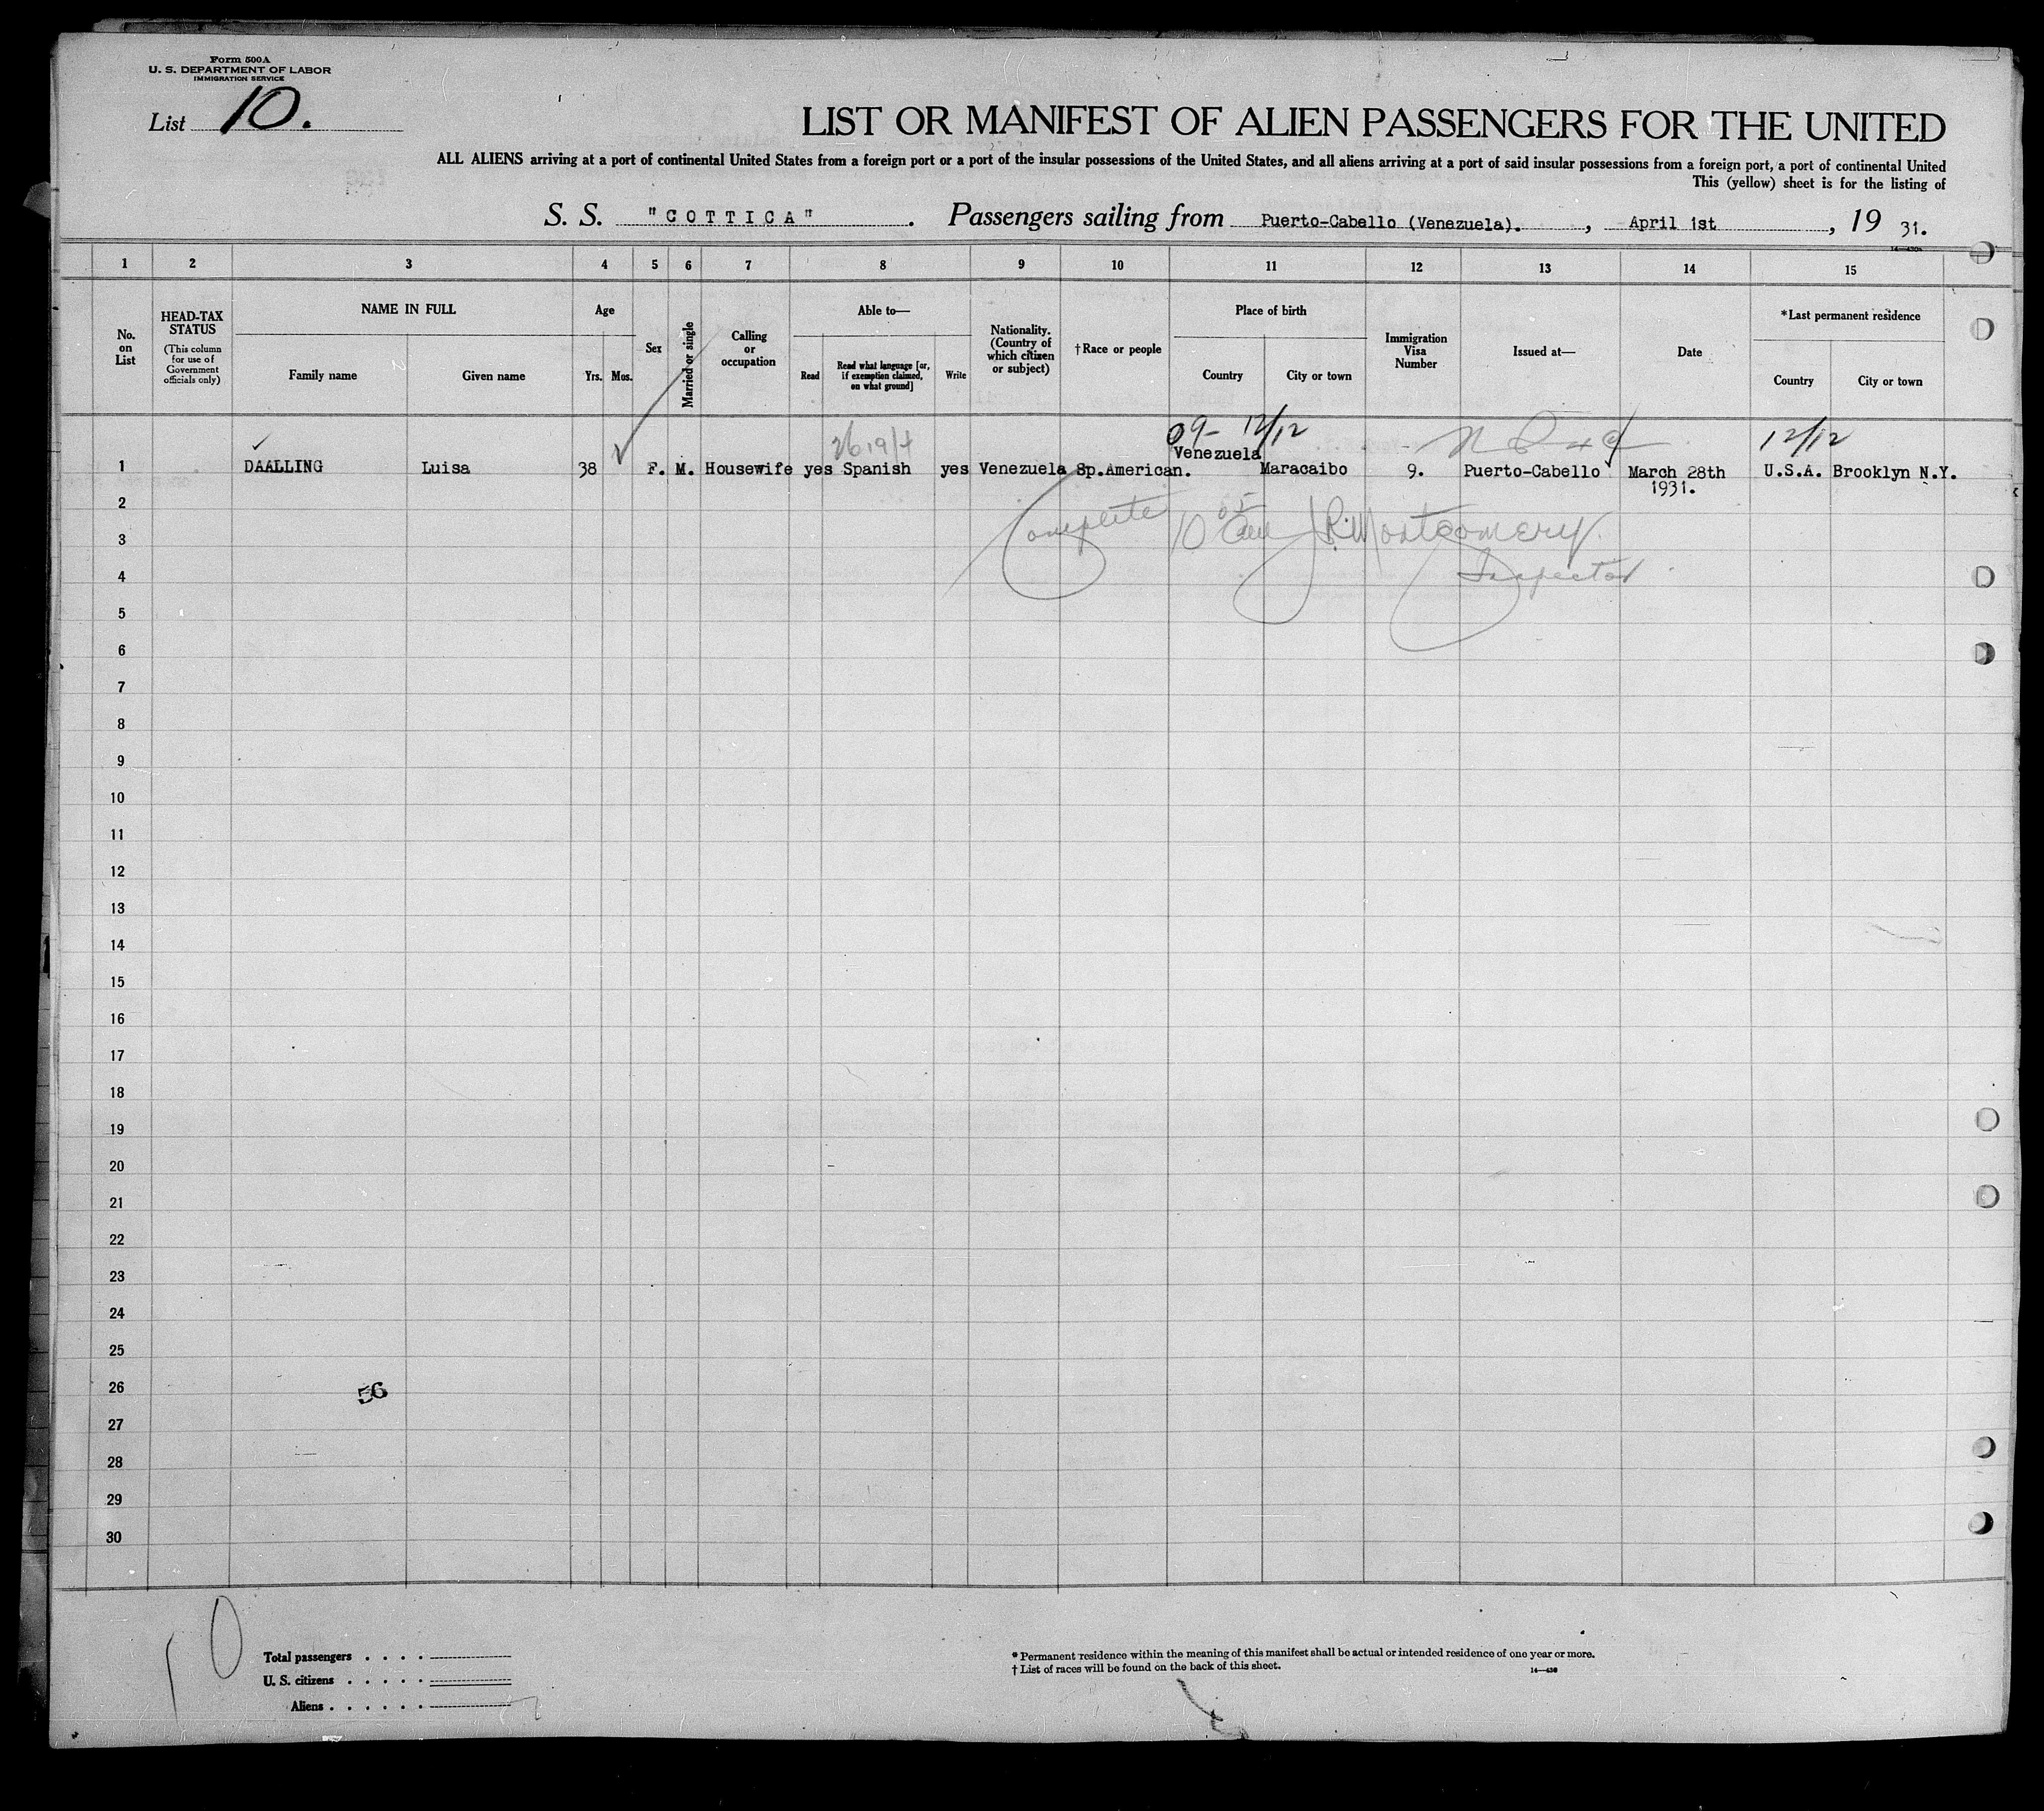 Form 500A
U. S. DEPARTMENT OF LABOR
IMMIGRATION SERVICE
List 10.
LIST OR MANIFEST OF ALIEN PASSENGERS FOR THE UNITED
ALL ALIENS arriving at a port of continental United States from a foreign port or a port of the insular possessions of the United States, and all aliens arriving at a port of said insular possessions from a foreign port, a port of continental United
This (yellow) sheet is for the listing of
S. S. "COTTICA". Passengers sailing from Puerto-Cabello (Venezuela)., April 1st, 19 31.
1 2 3 4 5 6 7 8 9 10 11 12 13 14 15
No. on List
HEAD-TAX STATUS
(This column for use of Government officials only)
NAME IN FULL
Family name
Given name
Age
Yrs. Mos.
Sex
Married or single
Calling or occupation
Able to—
Read
Read what language [or, if exemption claimed, on what ground]
Write
Nationality. (Country of which citizen or subject)
†Race or people
Place of birth
Country
City or town
Immigration Visa Number
Issued at—
Date
*Last permanent residence
Country
City or town
09- 12/12
12/12
Venezuela
1 DAALLING Luisa 38 F. M. Housewife yes Spanish yes Venezuela Sp.American. Maracaibo 9. Puerto-Cabello March 28th U.S.A. Brooklyn N.Y.
1931.
2
Complete 10 05 JR Montgomery.
3
Inspector
4
5
6
7
8
9
10
11
12
13
14
15
16
17
18
19
20
21
22
23
24
25
26
56
27
28
29
30
10
Total passengers . . . .
U. S. citizens . . . . .
Aliens . . . . . .
* Permanent residence within the meaning of this manifest shall be actual or intended residence of one year or more.
† List of races will be found on the back of this sheet.
14—430